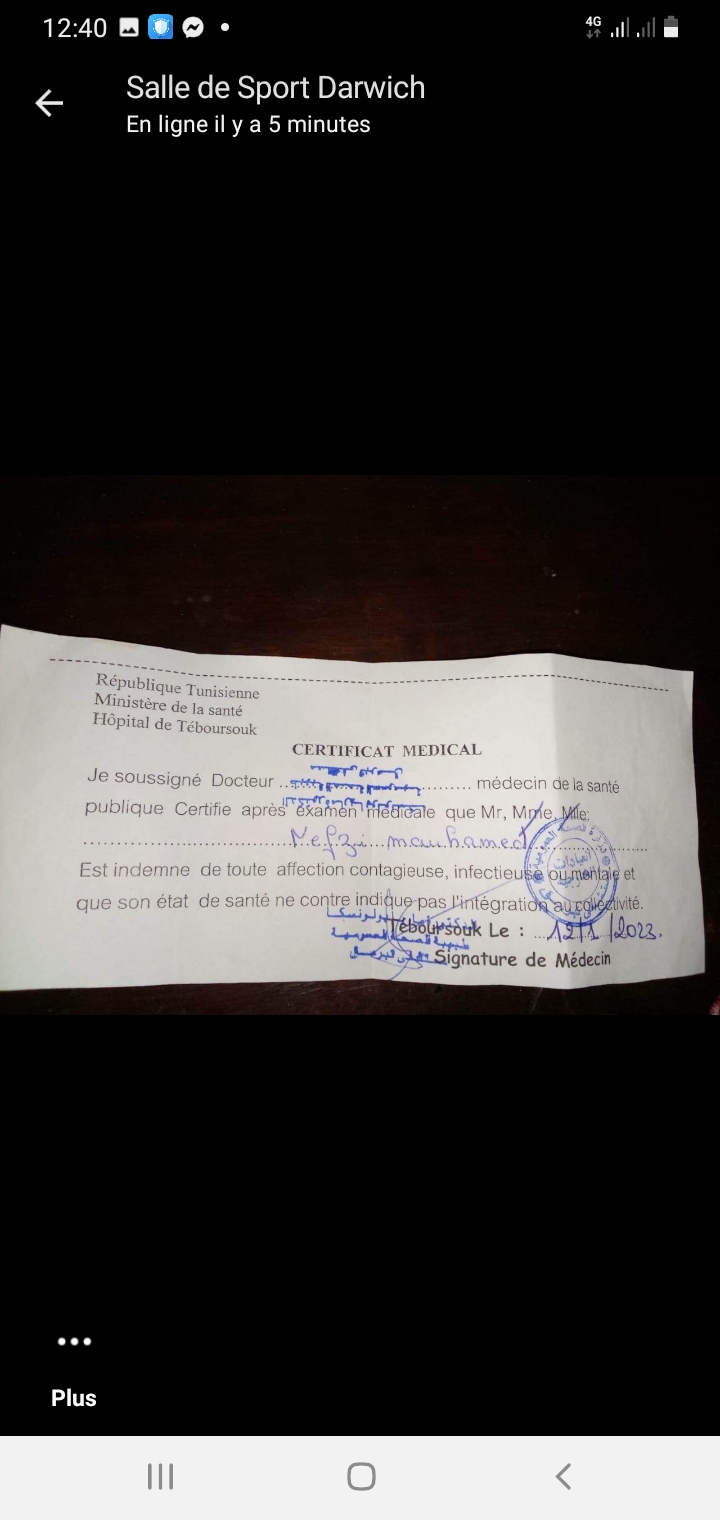 12:40
4G
Salle de Sport Darwich
En ligne il y a 5 minutes
République Tunisienne
Ministère de la santé
Hôpital de Téboursouk
CERTIFICAT MEDICAL
Je soussigné Docteur .................. médecin de la santé
publique Certifie après examen médicale que Mr, Mme, Mlle:
Nefzi mouhamed
Est indemne de toute affection contagieuse, infectieuse ou mentale et
que son état de santé ne contre indique pas l'intégration au collectivité.
Téboursouk Le : 12/1/2023.
Signature de Médecin
Plus